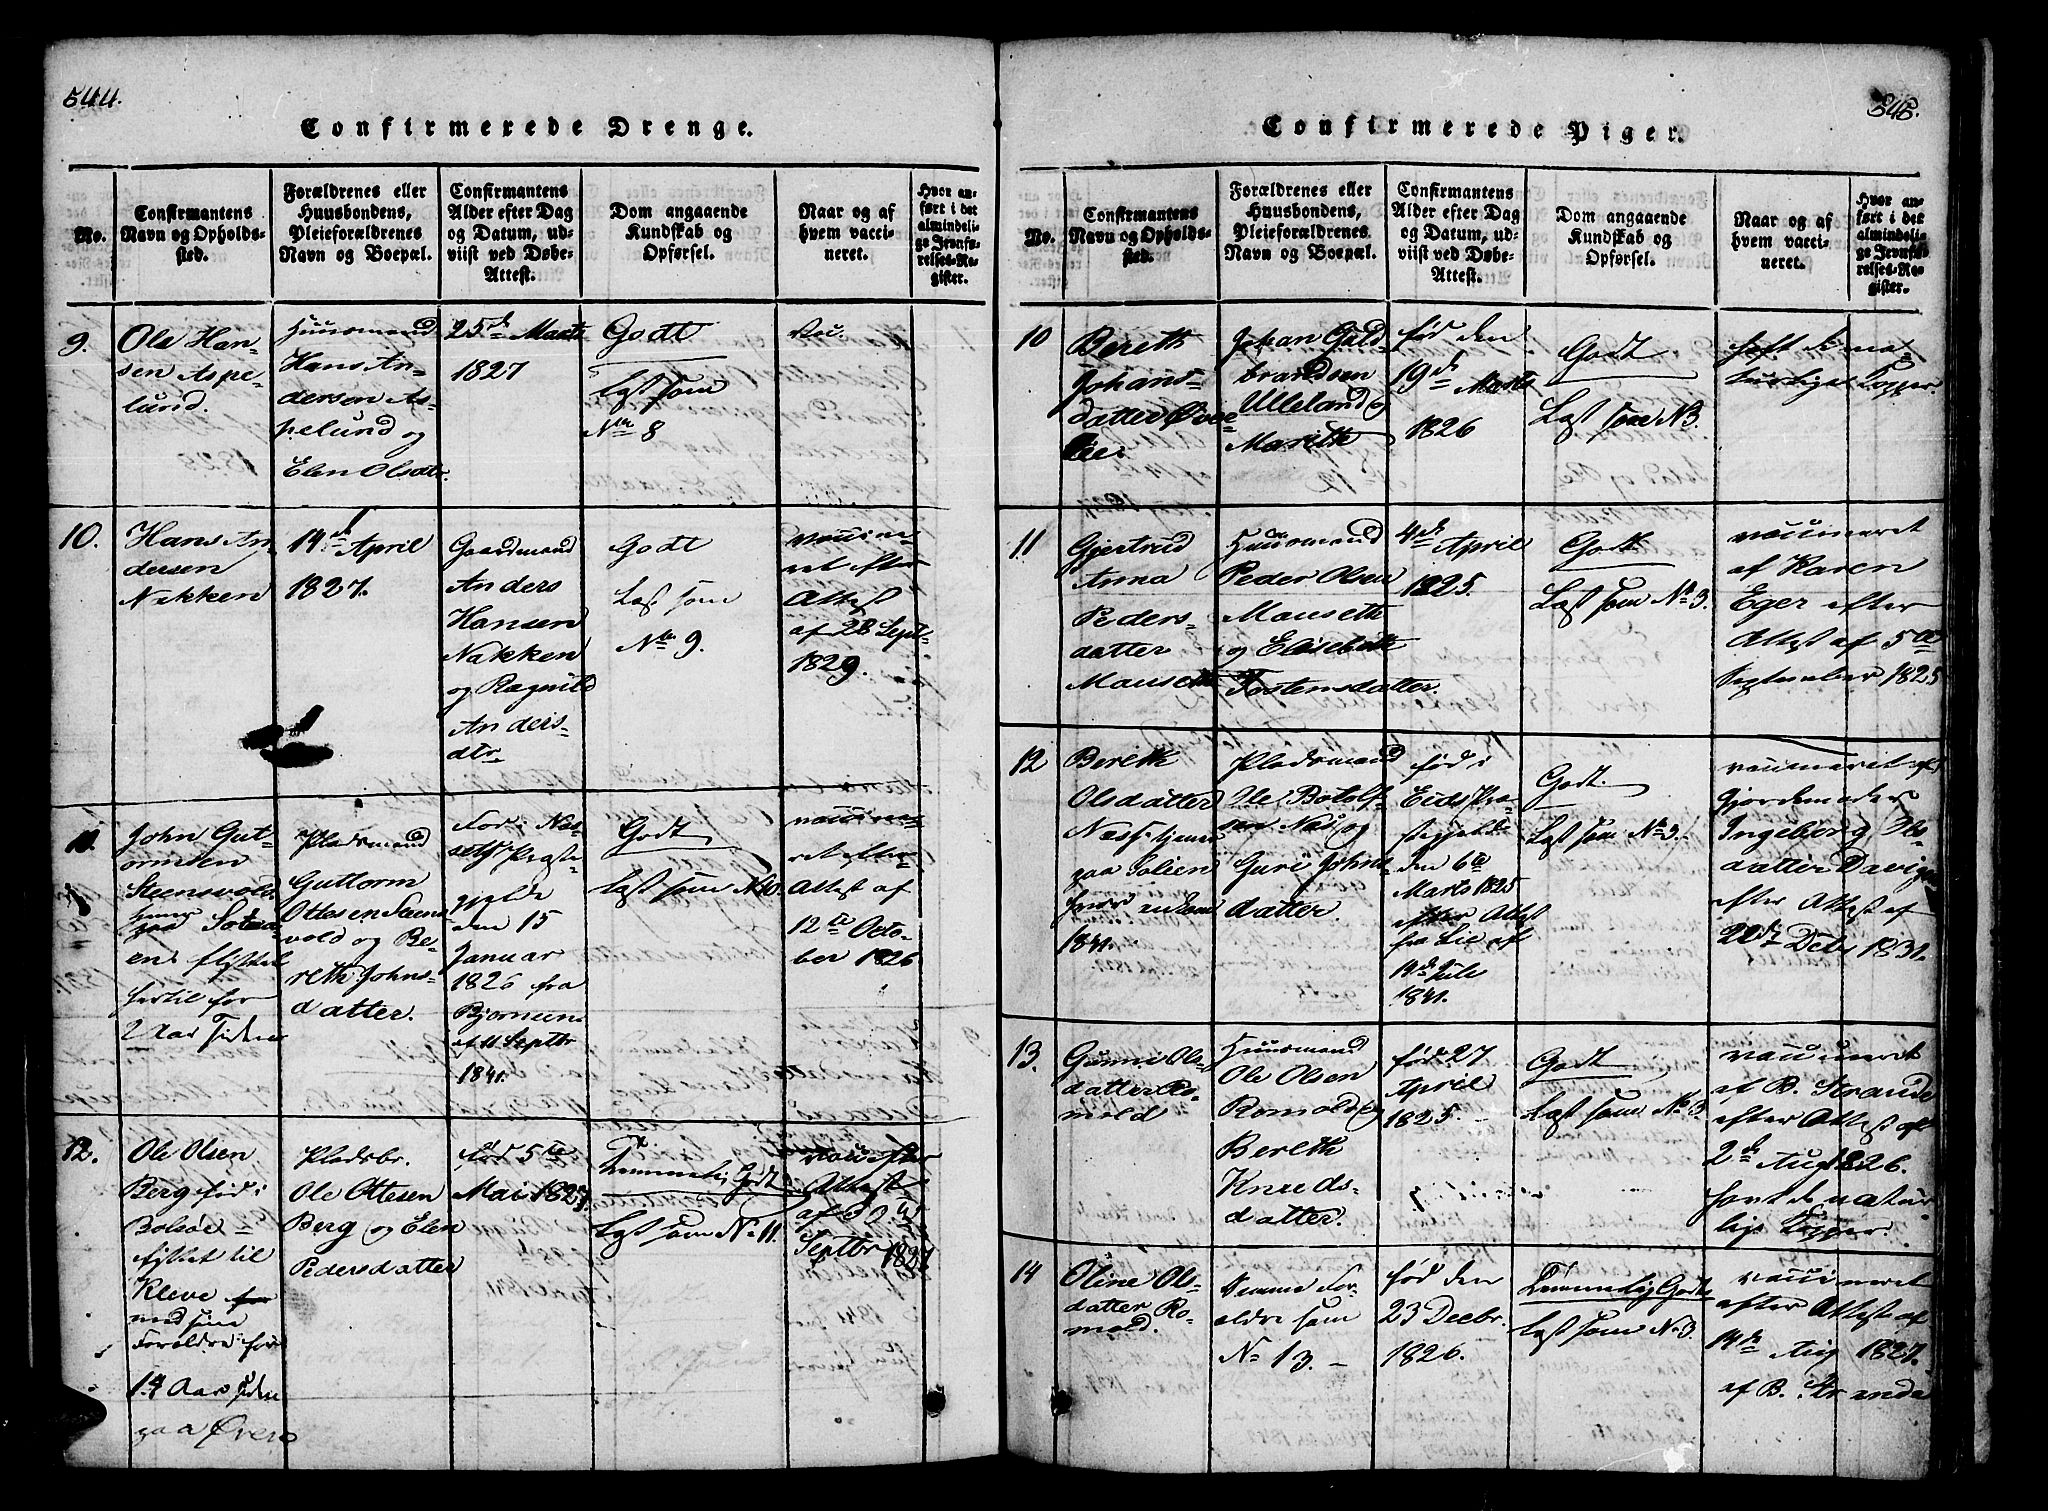 544.
Confirmerede Drenge.
No.
Confirmantens
Navn og Opholds-
sted.
Forældrenes eller
Huusbondens,
Pleieforældrenes
Navn og Boepæl.
Confirmantens
Alder efter Dag
og Datum, ud-
viist ved Døbe-
Attest.
Dom angaaende
Kundskab og
Opførsel.
Naar og af
hvem vacci-
neret.
Hvor an-
ført i det
almindeli-
ge Jevnfø-
relses-Re-
gister.
9.
Ole Han-
sen Aspe-
lund.
Huusmand
Hans An-
dersen As-
pelund og
Elen Olsdtr.
25de Marts
1827
Godt
Læst som
No 8
Vac.
10.
Hans An-
dersen
Nakken
14de April
1827.
Gaardmand
Anders
Hansen
Nakken
og Ragnild
Anders-
dtr.
Godt
Læst som
No 9.
vaccine-
ret efter
Attest
af 28 Septr
1829.
11.
John Gut-
ormsen
Steensvold
paa
flyttet
hertil for
2 Aar siden
Pladsmand
Guttorm
Ottesen Steens
vold og Be-
reth Johns-
datter.
Præste-
gjeld
den 15
Januar
1826 fra
af 11 Septbr
1841.
Godt
Læst som No 10.
vaccine-
ret efter
Attest af
12te Octo-
ber 1826
12.
Ole Olsen
Berg fød i
Bolsøe
flyttet til
Kleve
med sine
Forældre for
14 Aar siden
paa Øveraas
Pladsbr.
Ole Ottesen
Berg og Elen
Pedersdatter
fød 5te
Mai 1827
Temmelig Godt
Læst som No 11.
vac. efter
Attest
af
Septbr 1827
545.
Confirmerede Piger.
No.
Confirmantens
Navn og Opholds-
sted.
Forældrenes eller
Huusbondens,
Pleieforældrenes
Navn og Boepæl.
Confirmantens
Alder efter Dag
og Datum, ud-
viist ved Døbe-
Attest.
Dom angaaende
Kundskab og
Opførsel.
Naar og af
hvem vacci-
neret.
Hvor an-
ført i det
almindeli-
ge Jevnfø-
relses-Re-
gister.
10
Bereth
Johans-
datter
Johan Guld-
brandsen
Ulleland og
Mareth
fød den
19de Marts
1826
Godt
Læst som No 3.
haft de na-
turligste Kopper.
11
Gjertrud
Anna
Peders-
datter
Mauseth
Huusmand
Peder Olsen
Mauseth
og Elisebeth
Tostensdatter.
4de April
1825.
Godt
Læst som No 3.
vaccineret
af Karen
Eger efter
Attest af 5te
September 1825
12
Bereth
Olsdatter
Næss tjener
paa Solien
1841.
Pladsmand
Ole Botolf-
sen Næs og
Guri Johns
datter.
fød i
Eids Præ-
stegjeld
den 6te
Marts 1825
efter Attest
fra Lie af
19de Juli
1841.
Godt.
Læst som No 3.
vaccineret af
Gjordemoder
Ingeborg Ols-
datter
efter Attest af
20de Decbr 1831.
13.
Gunni Ols
datter Ro-
mold
Huusmand
Ole Olsen
Romold og
Bereth
Knuds-
datter.
fød 27
April
1825.
Godt
Læst som No 3.
vaccineret
af B. Strande
efter Attest af
2de Aug 1826.
havt de natur
lige Kopper.
14
Oline Ols-
datter Ro-
mold.
Samme For-
ældre som
No 13.
fød den
23 Decbr.
1826.
Temmelig Godt
Læst som No 3.
vaccineret
efter Attest af
14de Aug 1827.
af B. Strande